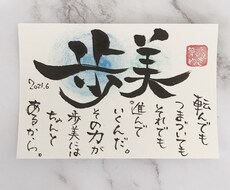 歩美
転んでも
つまづいても
それでも
進んで
いくんだ。
その力が
歩美には
ちゃんと
あるから。
2021.6